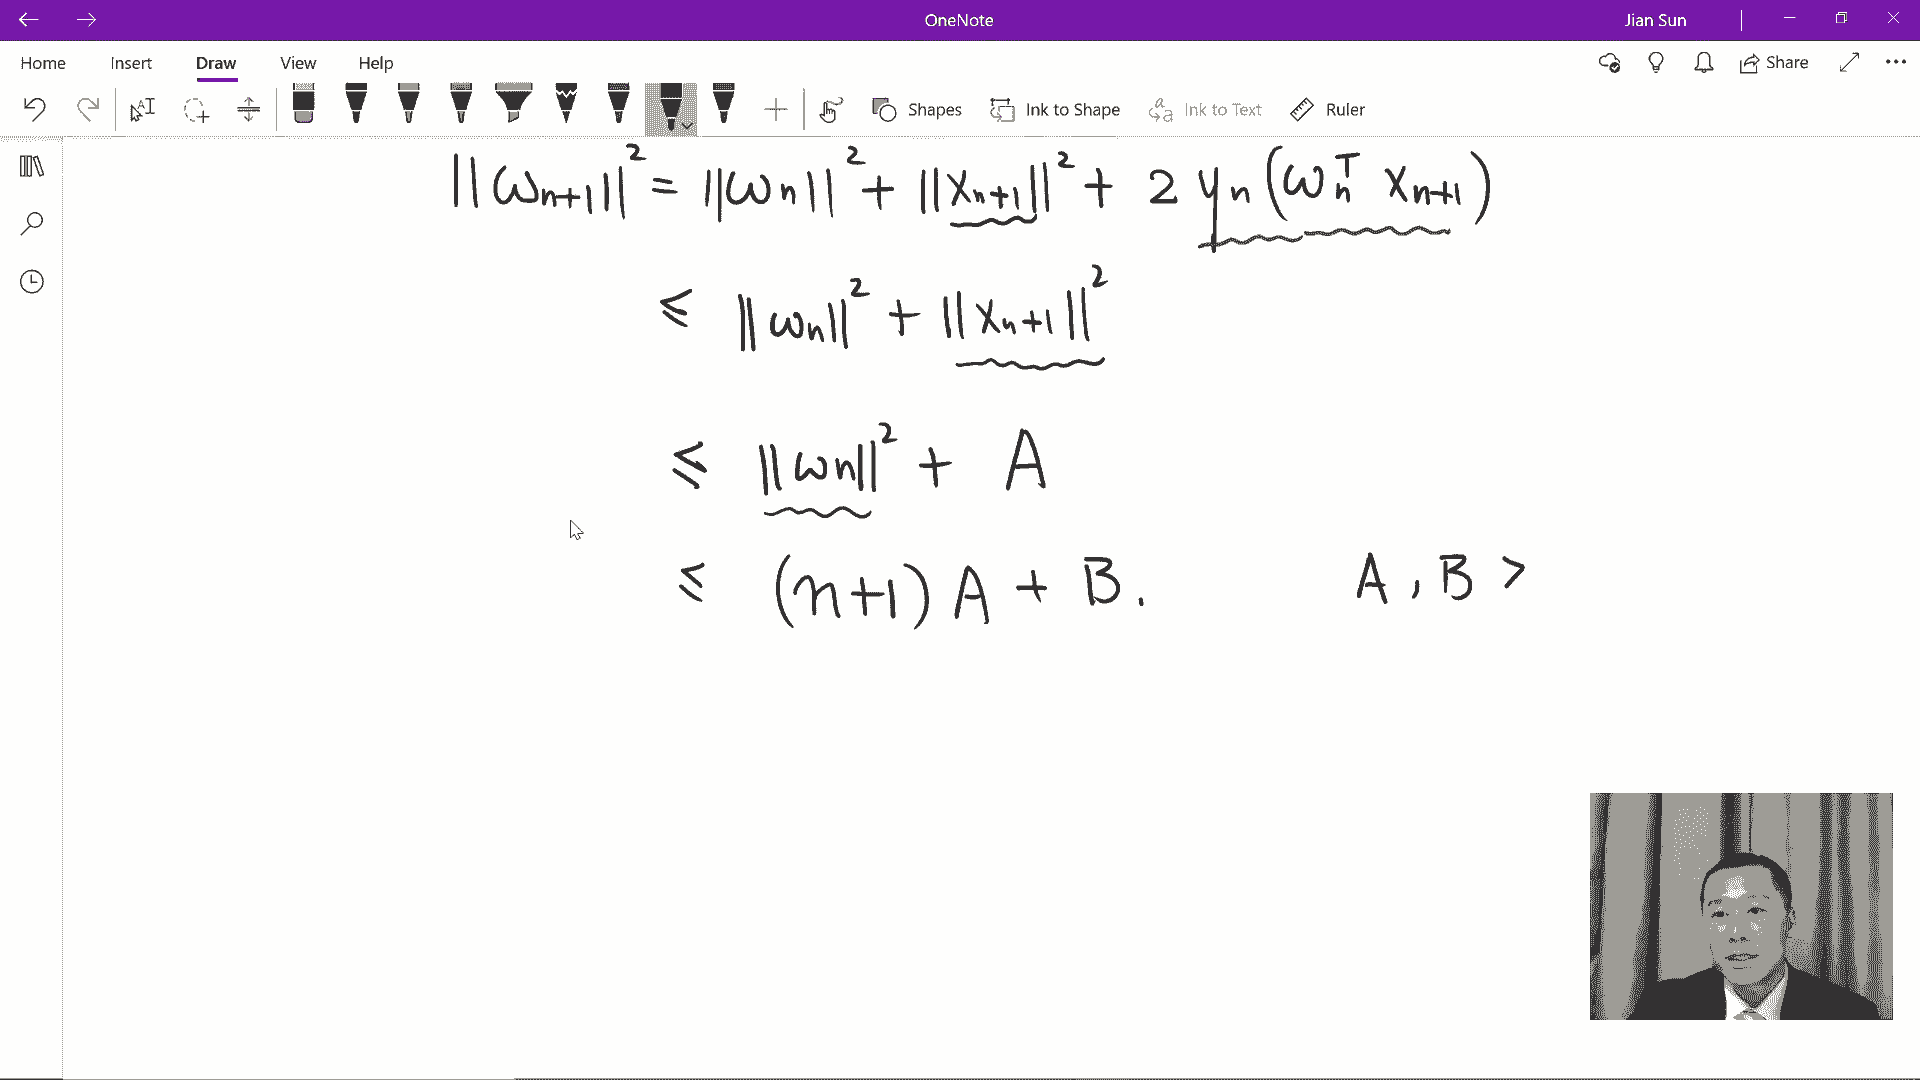 OneNote
Jian Sun
Home Insert Draw View Help
Share
Shapes Ink to Shape Ink to Text Ruler
||ω_{n+1}||² = ||ω_n||² + ||x_{n+1}||² + 2 y_n (ω_n^T x_{n+1})
≤ ||ω_n||² + ||x_{n+1}||²
≤ ||ω_n||² + A
≤ (n+1) A + B. A, B >